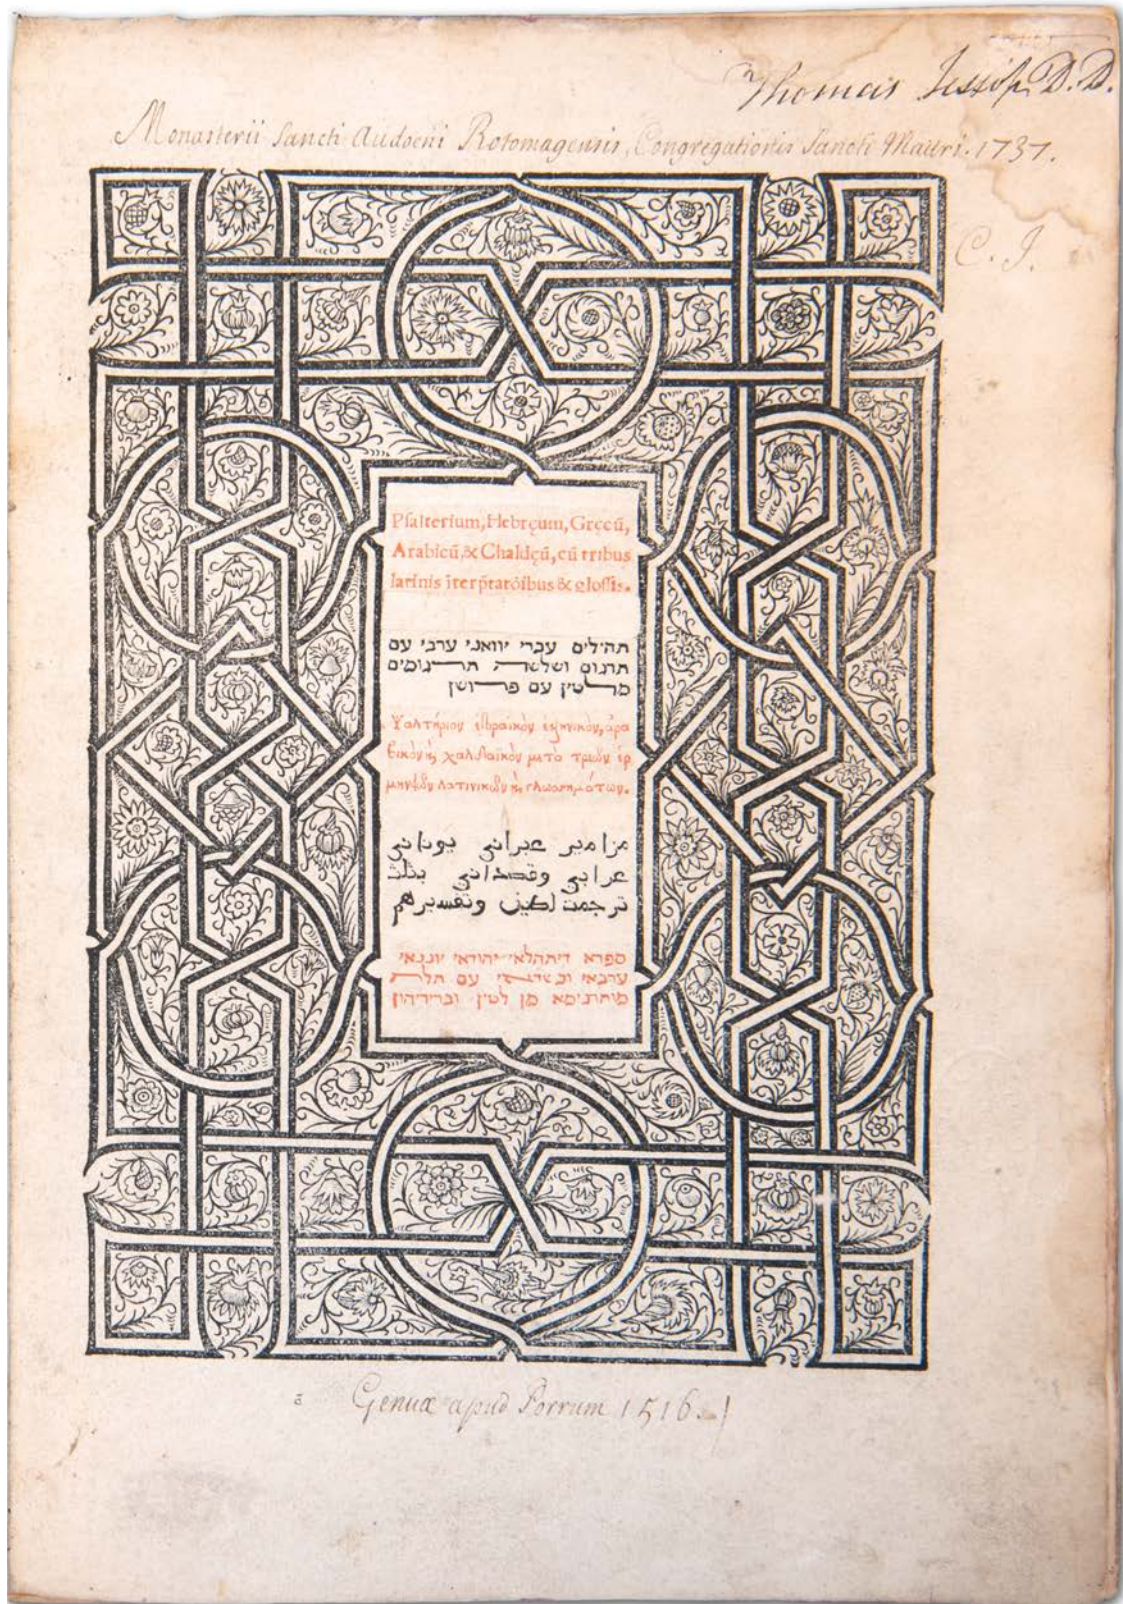 Thomas Jessop D.D.
Monasterii Sancti Audoeni Rotomagensis, Congregationis Sancti Mauri. 1737.
C. J.
Psalterium, Hebręum, Gręcū,
Arabicū, & Chaldęū, cū tribus
latinis īterp̄tatōibus & glossis.
תהילים עברי יוואני ערבי עם
תרגום ושלשה תרגומים
מלטין עם פרושן
Ψαλτήριον ἑβραϊκὸν ἑλληνικὸν, ἀρα
βικὸν καὶ χαλδαϊκὸν μετὰ τριῶν ἑρ
μηνειῶν λατινικῶν καὶ γλωσσημάτων.
مزامير عبراني يوناني
عرابي وقصداني بثلث
ترجمت لطيني وتفسيرهم
ספרא דיתהלא יהודאי יוננאי
ערבאי וכשדאי עם תלת
מן לטין ובריריהון
Genuæ apud Porrum 1516.